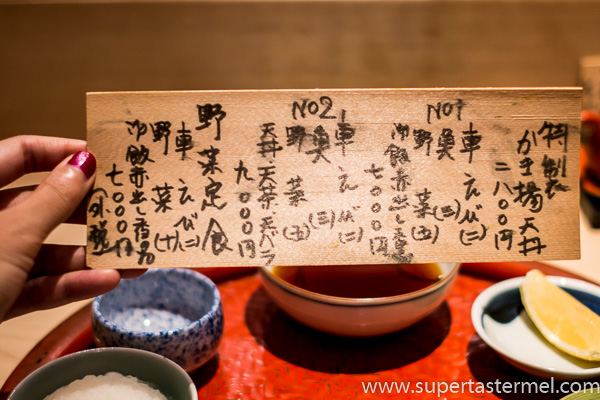 特製
かき揚天丼
二八〇〇円
No1
車えび(二)
奥(三)
野菜(五)
御飯赤出し香物
七〇〇〇円
No2
車えび(二)
奥(三)
野菜(五)
天丼 天茶 天バラ
九〇〇〇円
野菜定食
車えび(二)
野菜(十)
御飯赤出し香物
七〇〇〇円
(外税)
www.supertastermel.com